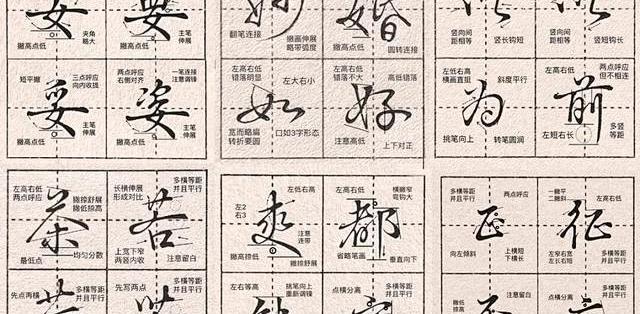 安
要
好
婚
夹角
略大
撇高点低
主笔
伸展
翻笔连接
撇画伸展
略带弧度
撇高点低
圆转连接
竖向间
距相等
竖长钩短
竖向间
距相等
竖短钩长
短平撇
三点呼应
向内收拢
要
撇高点低
主笔
伸展
两点呼应
右侧对齐
一笔连接
注意调锋
姿
撇高点低
主笔
伸展
左高右低
错落明显
左大右小
如
宽而略扁
转折要圆
口如3字形态
左高右低
错落不大
高低错落
好
注意高低
上下对正
左低右高
横画直挺
斜度平行
为
挑笔向上
转笔圆润
左高右低
两点呼应
但不相连
前
左短右长
多竖
等距
左高右低
两点呼应
撇捺舒展
撇低捺高
茶
最低点
均匀分数
长横伸展
形成对比
多横等距
并且平行
苦
上宽下窄
两竖内收
注意留白
左2
右3
左低右高
爽
注意
连带
撇高捺低
撇捺舒展
左高右低
横撇窄
弯钩大
都
省略笔画
垂直向下
多横等距
并且平行
两点呼应
正
向左倾斜
上横短
下横长
一撇平
二撇斜
左高右低
征
左窄右宽
左长右短
多横等距
并且平行
先点再横
多横等距
并且平行
先写两点
多横等距
并且平行
左右等高
挑笔向上
重新调锋
点横分离
多横等距
并且平行
撇低
捺高
注意留白
点横分离
多横等距
并且平行